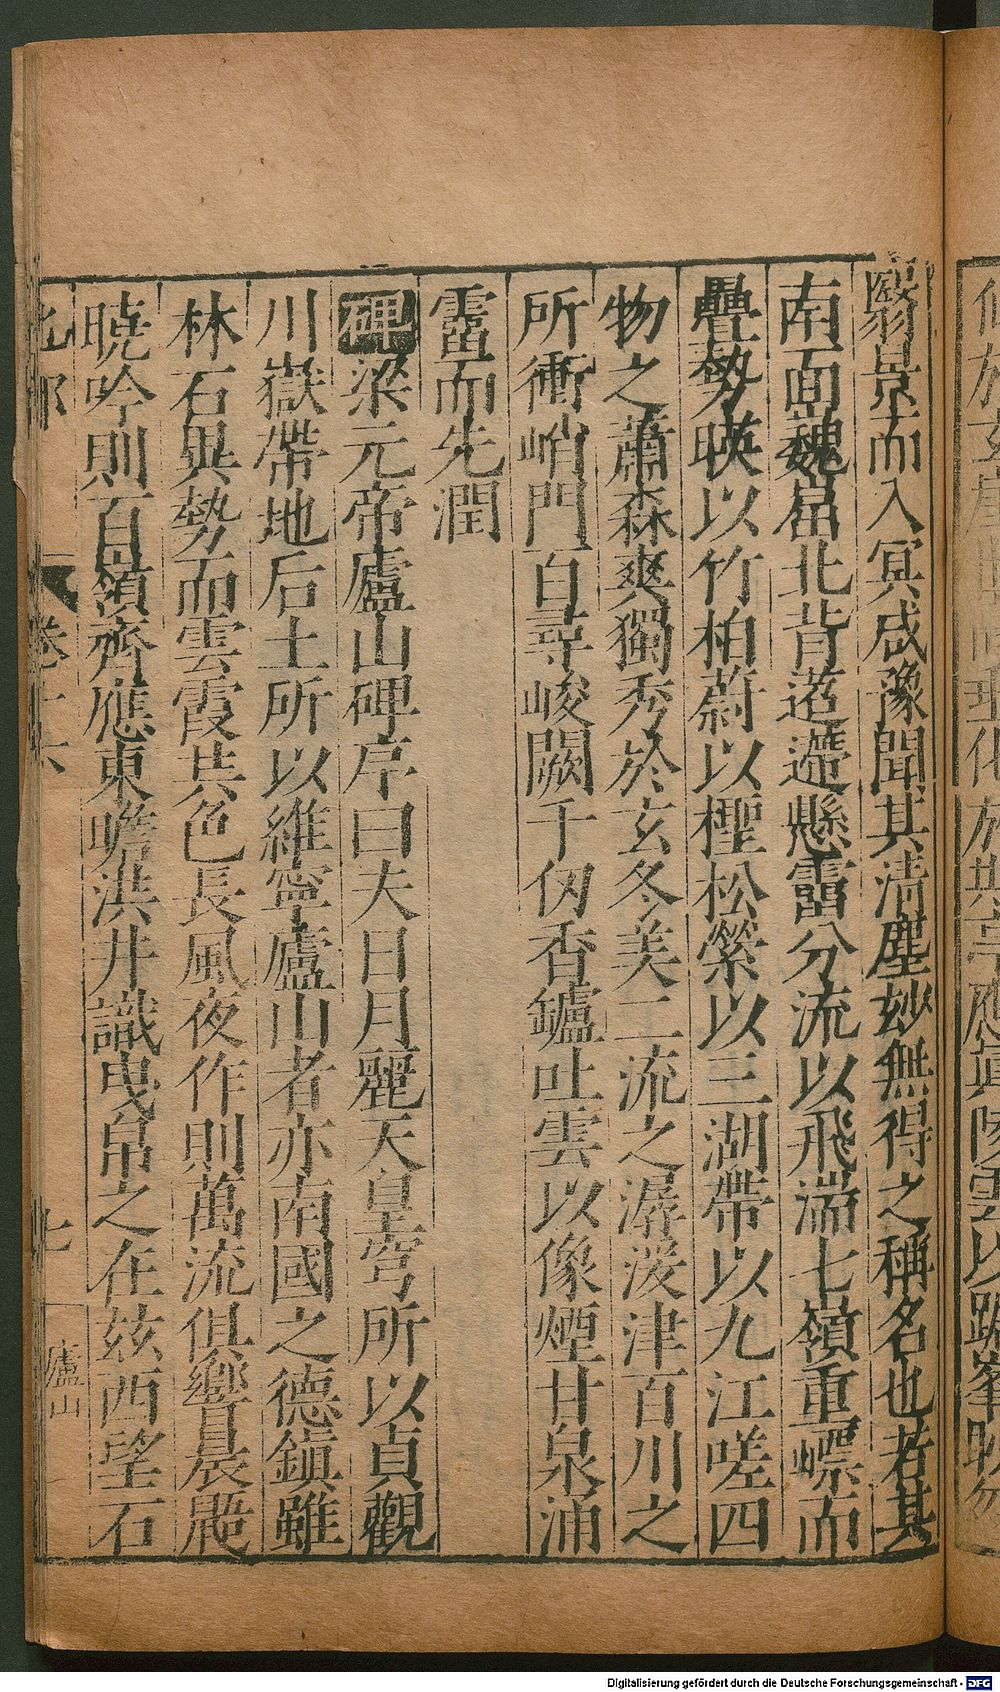 翳景而入冥咸豫聞其清塵玅無得之稱名也若其
南面巍崫北背迢遰懸霤分流以飛湍七嶺重嶚而
疊勢暎以竹柏蔚以檉松縈以三湖帶以九江嗟四
物之蕭森爽獨秀於玄冬美二流之潺湲津百川之
所衝峭門百尋峻闕千仞香鑪吐雲以像煙甘泉浦
霤而先潤
碑梁元帝廬山碑序曰夫日月麗天皇穹所以貞觀
川嶽帶地后土所以維寧廬山者亦南國之德鎮雖
林石與勢而雲霞共色長風夜作則萬流俱響晨鼯
曉吟則百嶺齊應東瞻洪井識曳帛之在茲西望石
卷 七 廬山
Digitalisierung gefördert durch die Deutsche Forschungsgemeinschaft - DFG